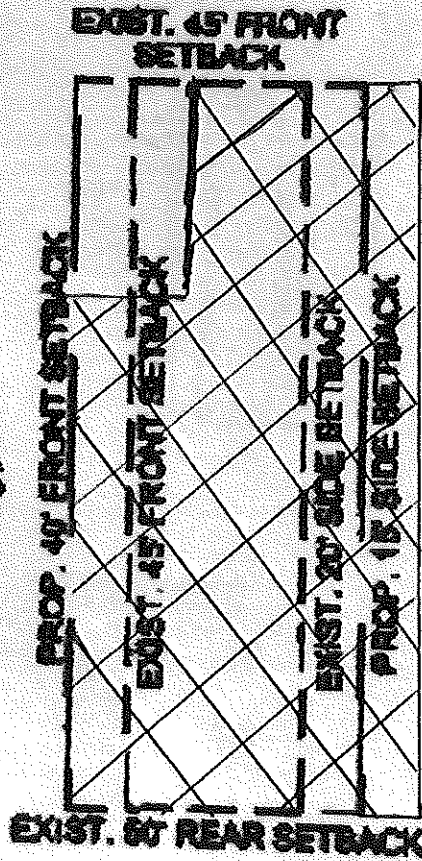 EXIST. 45' FRONT
SETBACK
PROP. 40' FRONT SETBACK
EXIST. 45' FRONT SETBACK
EXIST. 20' SIDE SETBACK
PROP. 15' SIDE SETBACK
EXIST. REAR SETBACK